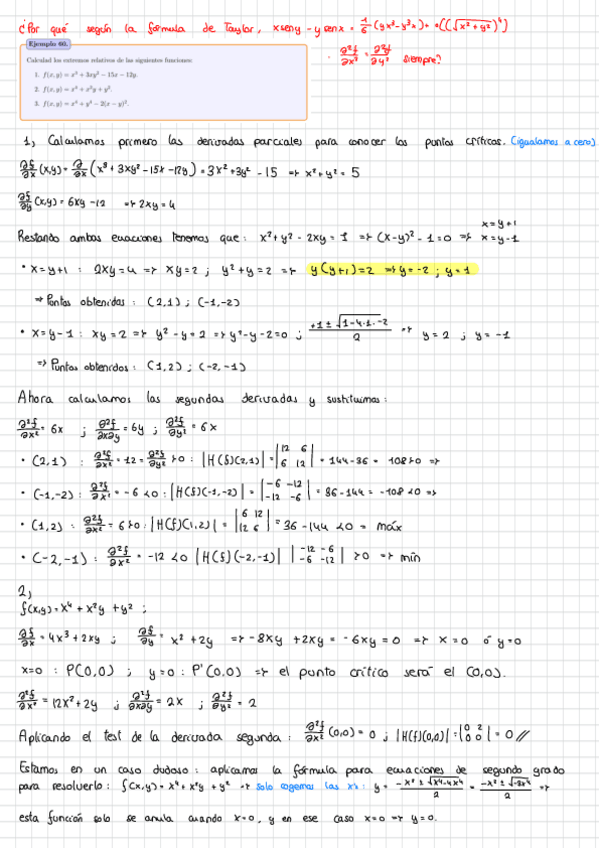 ¿Por qué según la fórmula de Taylor, x seny - y senx = 1/6 (yx³ - y³x) + o((√x²+y²)⁴)
Ejemplo 60.
· ∂²f/∂x² = ∂²f/∂y² siempre?
Calculad los extremos relativos de las siguientes funciones:
1. f(x, y) = x³ + 3xy² − 15x − 12y.
2. f(x, y) = x⁴ + x²y + y².
3. f(x, y) = x⁴ + y⁴ − 2(x − y)².
1, Calculamos primero las derivadas parciales para conocer los puntos críticos. (igualamos a cero)
∂f/∂x (x,y) = ∂/∂x (x³ + 3xy² - 15x - 12y) = 3x² + 3y² - 15 => x² + y² = 5
∂f/∂y (x,y) = 6xy - 12 => 2xy = 4
Restando ambas ecuaciones tenemos que: x² + y² - 2xy = 1 => (x-y)² - 1 = 0 => x = y+1 x = y-1
• x = y+1 : 2xy = 4 => xy = 2 ; y² + y = 2 => y(y+1) = 2 => y = -2 ; y = 1
=> Puntos obtenidos : (2,1) ; (-1,-2)
• x = y-1 : xy = 2 => y² - y = 2 => y² - y - 2 = 0 ; +1 ± √1-4·1·-2 / 2 => y = 2 ; y = -1
=> Puntos obtenidos : (1,2) ; (-2,-1)
Ahora calculamos las segundas derivadas y sustituimos:
∂²f/∂x² = 6x ; ∂²f/∂x∂y = 6y ; ∂²f/∂y² = 6x
• (2,1) : ∂²f/∂x² = 12 = ∂²f/∂y² > 0 : |H(f)(2,1)| = |12 6 6 12| = 144 - 36 = 108 > 0 =>
• (-1,-2) : ∂²f/∂x² = -6 < 0 : |H(f)(-1,-2)| = |-6 -12 -12 -6| = 36 - 144 = -108 < 0 =>
• (1,2) : ∂²f/∂x² = 6 > 0 : |H(f)(1,2)| = |6 12 12 6| = 36 - 144 < 0 = máx
• (-2,-1) : ∂²f/∂x² = -12 < 0 |H(f)(-2,-1)| |-12 -6 -6 -12| > 0 => mín
2,
f(x,y) = x⁴ + x²y + y² ;
∂f/∂x = 4x³ + 2xy ; ∂f/∂y = x² + 2y => -8xy + 2xy = -6xy = 0 => x = 0 ó y = 0
x=0 : P(0,0) ; y=0 : P'(0,0) => el punto crítico será el (0,0).
∂²f/∂x² = 12x² + 2y ; ∂²f/∂x∂y = 2x ; ∂²f/∂y² = 2
Aplicando el test de la derivada segunda : ∂²f/∂x² (0,0) = 0 ; |H(f)(0,0)| = |0 2 0 0| = 0 //
Estamos en un caso dudoso : aplicamos la fórmula para ecuaciones de segundo grado
para resolverlo : f(x,y) = x⁴ + x²y + y² => solo cogemos las x's : y = -x² ± √x⁴-4x⁴ / 2 = -x² ± √-3x⁴ / 2 =>
esta función solo se anula cuando x=0, y en ese caso x=0 => y=0.